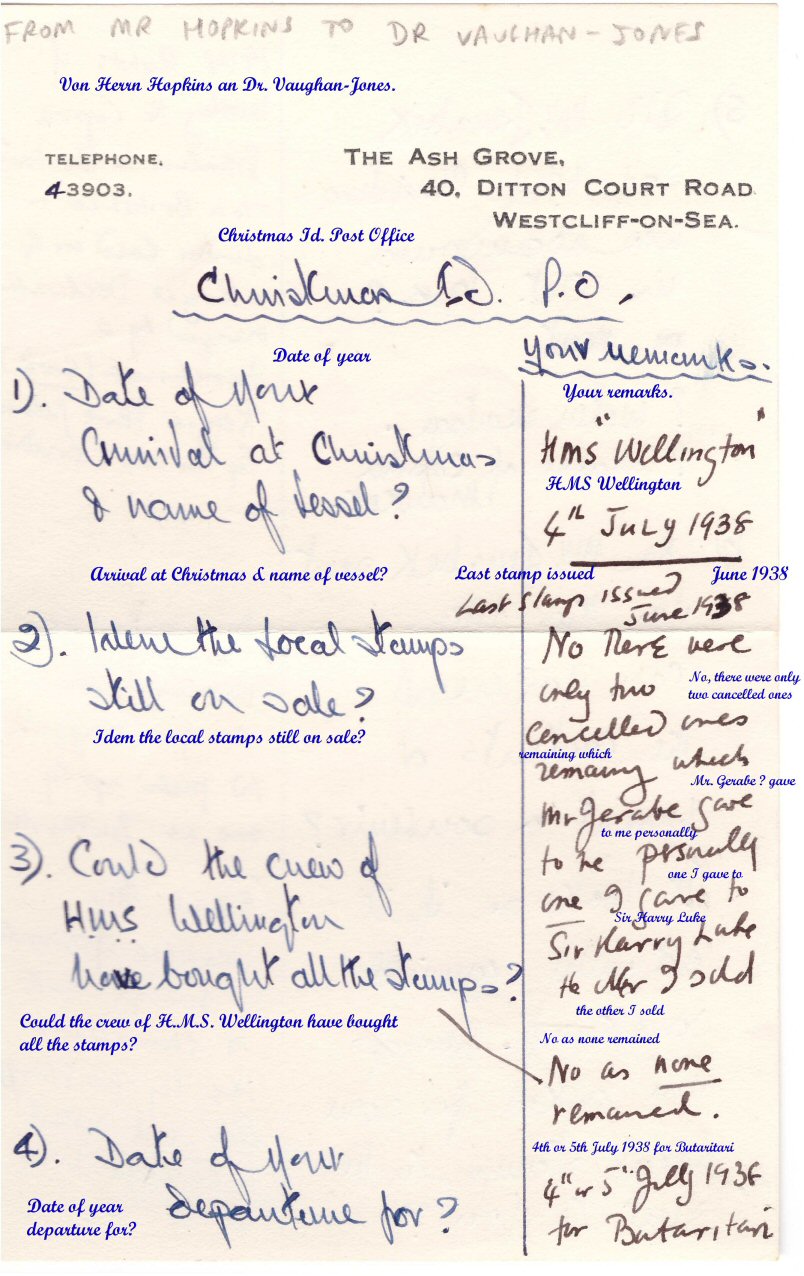 FROM MR HOPKINS TO DR VAUGHAN-JONES
Von Herrn Hopkins an Dr. Vaughan-Jones.
TELEPHONE.
43903.
THE ASH GROVE,
40, DITTON COURT ROAD
WESTCLIFF-ON-SEA.
Christmas Id. Post Office
Christmas Id. P.O.
Date of year
1). Date of your
Arrival at Christmas
& name of vessel?
Arrival at Christmas & name of vessel?
2). Were the Local stamps
still on sale?
Idem the local stamps still on sale?
3). Could the crew of
HMS Wellington
have bought all the stamps?
Could the crew of H.M.S. Wellington have bought
all the stamps?
4). Date of your
departure for?
Date of year
departure for?
Your remarks.
Your remarks.
HMS "Wellington"
HMS Wellington
4th JULY 1938
Last stamp issued
June 1938
Last stamp issued
June 1938
No There were
only two
No, there were only
two cancelled ones
cancelled ones
remaining which
remaing which
Mr. Gerabe ? gave
Mr Jerabe gave
to me personally
to me personally
one I gave to
one I gave to
Sir Harry Luke
Sir Harry Luke
the other I sold
the other I sold
No as none remained
No as none
remained.
4th or 5th July 1938 for Butaritari
4th or 5th July 1938
for Butaritari